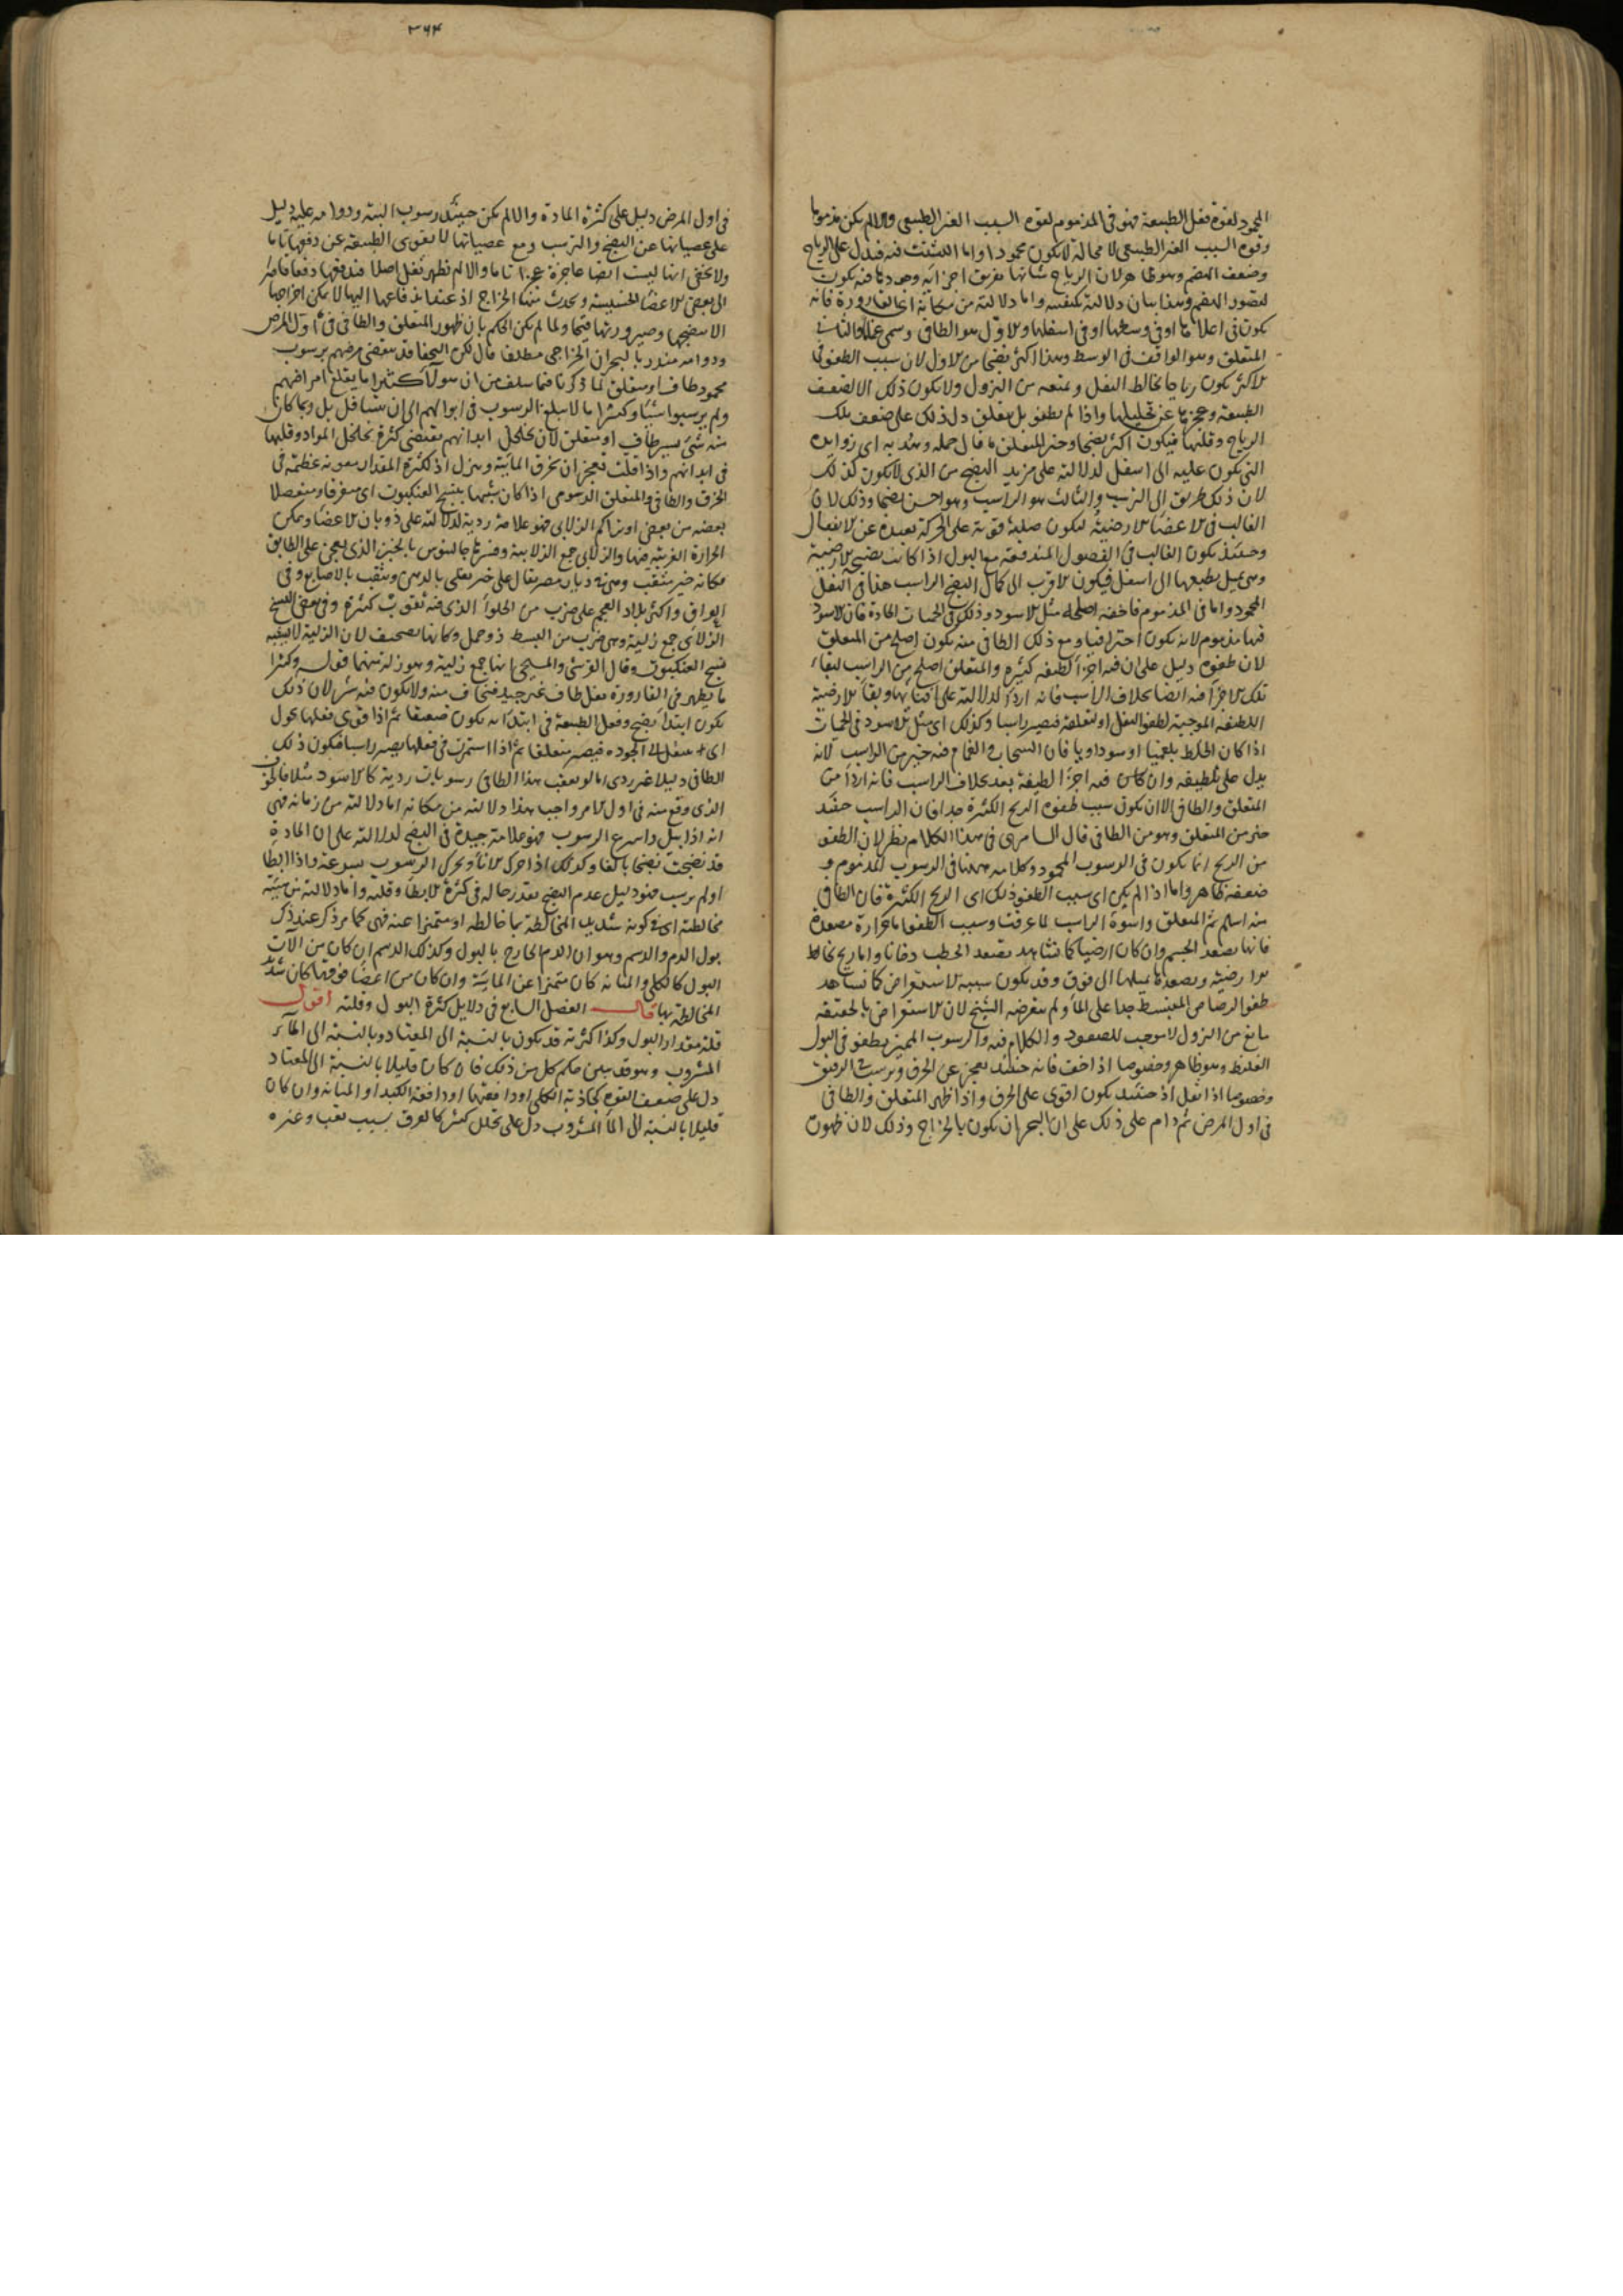 المحمود لقوة فعل الطبيعة فهو في المذموم لقوة السبب الغير الطبيعي والا لم يكن مذموما
وقوة السبب الغير الطبيعي لا محالة لا يكون محمودا واما التشتت فيه فيدل على الرياح
وضعف الهضم وهو ظاهر لان الرياح شانها تفريق اجزائه وحدوثها فيه يكون
لقصور الهضم وهذا بيان دلالته بكيفيته واما دلالته من مكانه القارورة فانه
يكون في اعلاها او في وسطها او في اسفلها والاول هو الطافي وسمى غماما والثاني
المتعلق وهو الواقف في الوسط وهذا اكثر نضجا من الاول لان سبب الطفو في
الاكثر يكون رياحا يخالط الثفل ويمنعه من النزول ولا يكون ذلك الا لضعف
الطبيعة وعجزها عن تحليلها واذا لم يطفو بل يتعلق دل ذلك على ضعف تلك
الرياح وقلتها فيكون اكثر نضجا وخير المتعلق ما قال حمله وهدبه اي زوايده
التي يكون عليه الى اسفل لدلالته على مزيد النضج من الذي لا يكون كذلك
لان ذلك طريق الى الترسب والثالث هو الراسب وهو احسن نضجا وذلك لان
الغالب في الاعضا الارضية فيكون صلبة قوية على الحركة بعيدة عن الانفعال
وحينئذ يكون الغالب في الفضول المندفعة مع البول اذا كانت نضيجة الارضية
وهي تميل بطبعها الى اسفل فيكون الاقرب الى كمال النضج الراسب هذا في الثفل
المحمود واما في المذموم فاخفه اصلحه مثل الاسود وذلك في الحميات الحادة فان الاسود
فيها مذموم لانه يكون احتراقيا ومع ذلك الطافي منه يكون اصلح من المتعلق
لان طفوه دليل على ان فيه اجزا لطيفة كثيرة والمتعلق اصلح من الراسب لبقاء
تلك الاجزا فيه ايضا بخلاف الراسب فانه اردا لدلالته على فنائها وبقا الارضية
اللطيفة الموجبة لطفو الثفل او تعلقه فيصير راسبا وكذلك اي مثل الاسود في الحميات
اذا كان الخلط بلغميا او سوداويا فان السحاب والغمام فيه خير من الراسب لانه
يدل على تلطيفه وان كاس فيه اجزا لطيفة بعد بخلاف الراسب فانه اردا من
المتعلق والطافي الا ان يكون سبب طفوه الريح الكثيرة جدا فان الراسب حينئذ
خير من المتعلق وهو من الطافي قال السامري في هذا الكلام نظر لان الطفو
من الريح انما يكون في الرسوب المحمود وكلامه ههنا في الرسوب المذموم و
ضعفه ظاهر واما اذا لم يكن اي سبب الطفو ذلك اي الريح الكثيرة فان الطافي
منه اسلم ثم المتعلق واسوءه الراسب لما عرفت وسبب الطفو اما حرارة مصعدة
فانها تصعد الجسم وان كان ارضيا كما نشاهد تصعد الحطب دخانا واما ريح تخالط
الارضية وتصعدها بميلها الى فوق وقد يكون سببه الاستعراض كما نشاهد
طفو الرصاص المنبسط جدا على الما ولم يتعرضه الشيخ لان الاستعراض بالحقيقة
مانع من النزول لا موجب للصعود والكلام فيه والرسوب المميز يطفو في البول
الغليظ وهو ظاهر وخصوصا اذا خف فانه حينئذ يعجز عن الخرق ويرسب في الرقيق
وخصوصا اذا ثقل اذ حينئذ يكون اقوى على الخرق واذا ظهر المتعلق والطافي
في اول المرض ثم دام على ذلك على ان البحران يكون بالخراج وذلك لان ظهوره
٣٦٤
في اول المرض دليل على كثرة المادة والا لم يكن حينئذ رسوب البتة ودوامه عليه دليل
على عصيانها عن النضج والترسب ومع عصيانها لا يقوى الطبيعة عن دفعها تاما
ولا يخفى انها ليست ايضا عاجزة عجزا تاما والا لم يظهر ثفل اصلا فيدفعها دفعا قاصرا
الى بعض الاعضا الخسيسة ويحدث منها الخراج اذ عند اندفاعها اليها لا يمكن اخراجها
الا بنضجها وصيرورتها قيحا ولما لم يكن الحكم بان ظهور المتعلق والطافي في اول المرض
ودوامه منذر بالبحران الخراجي مطلقا قال لكن النحفا قد ينقضي مرضهم برسوب
محمود طاف او متعلق لما ذكرنا فيما سلف من ان هولآ كثيرا ما يقلع امراضهم
ولم يرسبوا شيئا وكثيرا ما لا يبلغ الرسوب في ابوالهم الى ان يتسافل بل ربما كان
منه شئ يسير طاف او متعلق لان تخلخل ابدانهم يقتضي كثرة تحلل المواد وقلتها
في ابدانهم واذا قلت تعجز ان تخرق المائية وينزل اذ لكثرة المقدار معونة عظيمة في
الخرق والطافي والمتعلق الدسومي اذا كان شبيها بنسج العنكبوت اي متفرقا ومنفصلا
بعضه من بعض او بتراكم الزلابي فهو علامة ردية لدلالته على ذوبان الاعضا وتمكن
الحرارة الغريبة فيها والزلابي جمع الزلابية وفسرها جالينوس بالخبز الذي يعجن على الطابق
فكانه خبز مثقب وهي في ديار مصر يقال على خبز يقلى بالدهن ويثقب بالاصابع وفي
العراق واكثر بلاد العجم على ضرب من الحلوآ الذي فيه ثقوب كثيرة وفي بعض النسخ
الزلالي جمع زلية وهي ضرب من البسط ذو خمل وكانها تصحيف لان الزلية لا يشبه
نسج العنكبوت وقال القرشي والمسيحي بانها جمع زلبية وهو زلة منهما قوله وكثيرا
ما يظهر في القارورة ثفل طاف غير جيد فيخاف منه ولا يكون فيه شر لان ذلك
يكون ابتدا نضج وفعل الطبيعة في ابتدائه يكون ضعيفا ثم اذا قوي فعلها يحول
اي ينتقل الى الجودة فيصير متعلقا ثم اذا استمرت في فعلها يصير راسبا فيكون ذلك
الطافي دليلا غير ردي اما لو تعقب هذا الطافي رسوبات ردية كالاسود مثلا فالخوف
الذي وقع منه في اول الامر واجب هذا دلالته من مكانه اما دلالته من زمانه فهي
انه اذا بيل واسرع الرسوب فهو علامة جيدة في النضج لدلالته على ان المادة
قد نضجت نضجا بالغا وكذلك اذا حرك الانآ وتحرك الرسوب بسرعة واذا ابطا
او لم يرسب فهو دليل عدم النضج بقدر حاله في كثرة الابطا وقلته واما دلالته من هيئة
مخالطته اي في كونه شديد المخالطة بما خالطه او متميزا عنه فهي كما مر ذكر عند ذكر
بول الدم والدسم وهو ان الدم الخارج بالبول وكذلك الدسم ان كان من آلات
البول كالكلى والمثانة كان متميزا عن المائية وان كان من اعضا فوقها كان شديد
المخالطة بها قال الفصل السابع في دلايل كثرة البول وقلته اقول
قلة مقدار البول وكذا كثرته قد يكون بالنسبة الى المعتاد وبالنسبة الى المآء
المشروب وهو قد بين حكم كل من ذلك فان كان قليلا بالنسبة الى المعتاد
دل على ضعف القوة كجاذبة الكلى او دافعتها او دافعة الكبد او المثانة وان كان
قليلا بالنسبة الى الما المشروب دل على تحلل كثير كالعرق بسبب تعب وغيره